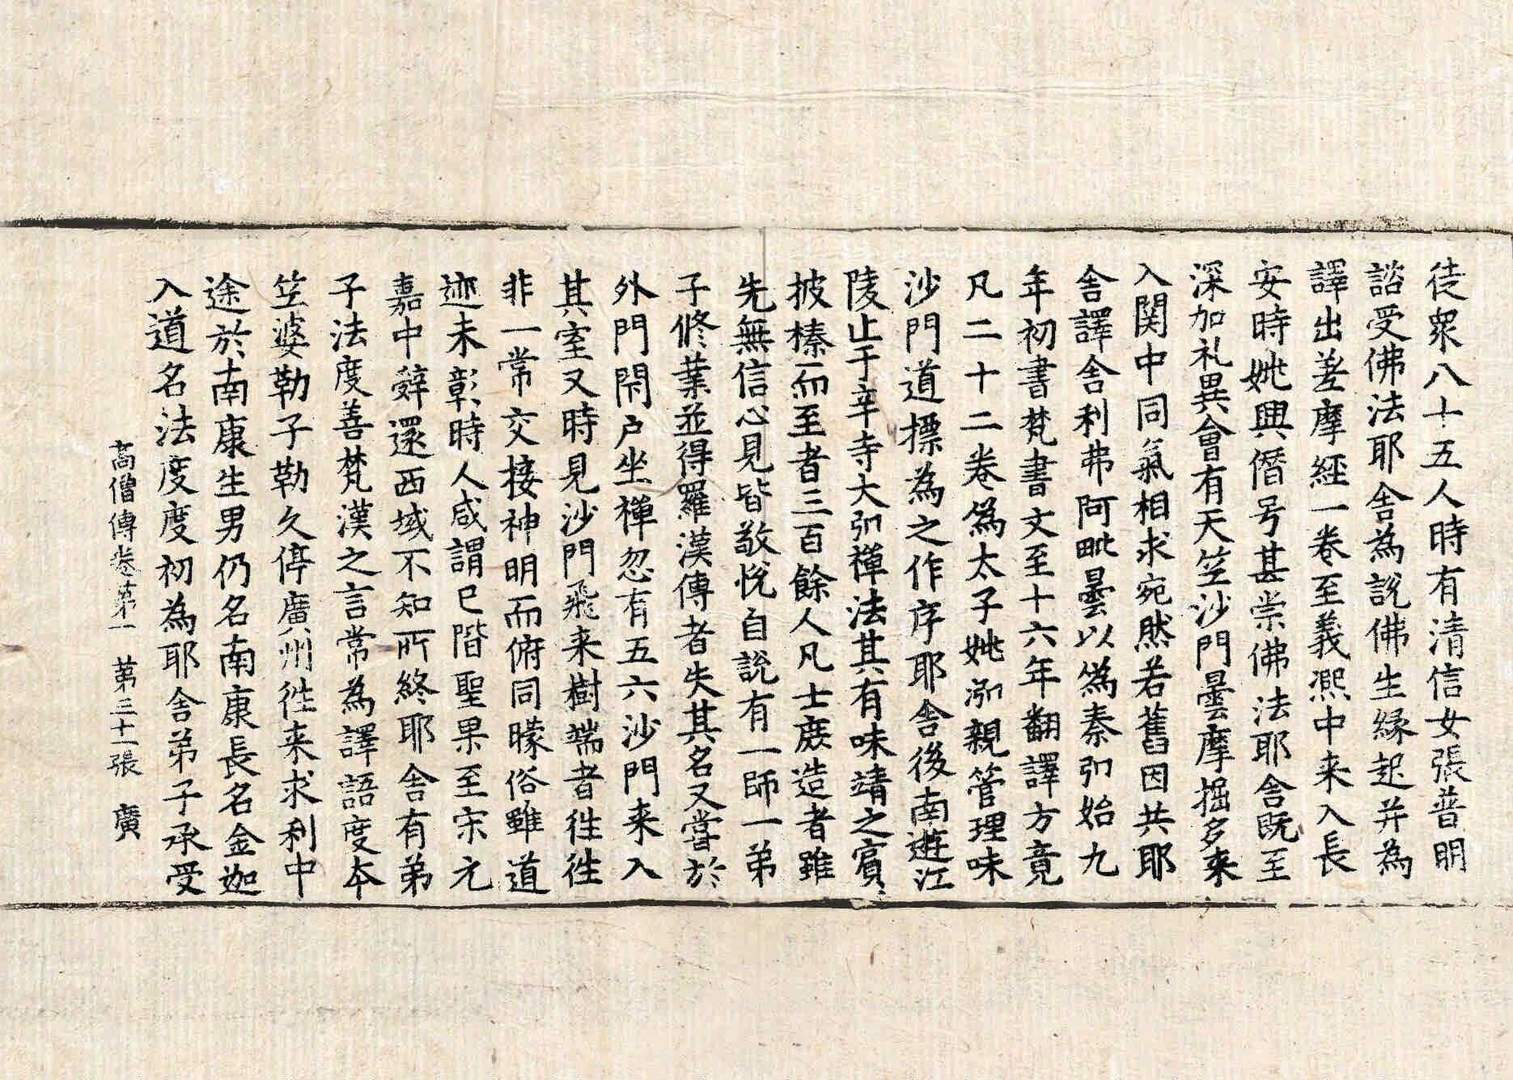 徒眾八十五人時有清信女張普明
諮受佛法耶舍為說佛生緣起并為
譯出差摩經一卷至義熙中来入長
安時姚興僭号甚崇佛法耶舍既至
深加礼異會有天竺沙門曇摩掘多来
入関中同氣相求宛然若舊因共耶
舍譯舍利弗阿毗曇以為秦弘始九
年初書梵書文至十六年翻譯方竟
凡二十二卷為太子姚泓親管理味
沙門道摽為之作序耶舍後南遊江
陵止于辛寺大弘禪法其有味靖之賓
披榛而至者三百餘人凡士庶造者雖
先無信心見皆敬悅自說有一師一弟
子修葉並得羅漢傳者失其名又甞於
外門閇户坐禪忽有五六沙門来入
其室又時見沙門飛来樹端者往往
非一常交接神明而俯同矇俗雖道
迹未彰時人咸謂已階聖果至宋元
嘉中辤還西域不知所終耶舍有弟
子法度善梵漢之言常為譯語度本
竺婆勒子勒久停廣州往来求利中
途於南康生男仍名南康長名金迦
入道名法度度初為耶舍弟子承受
高僧傳卷第一 第三十一張 廣